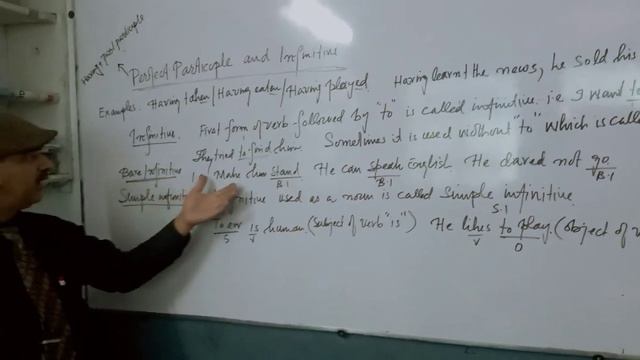 Having + past participle
Perfect Participle and Infinitive
Examples. Having taken/Having eaten/Having played. Having learnt the news, he sold his
Infinitive. First form of verb followed by "to" is called infinitive. i.e. I want to
They tried to find him. Sometimes it is used without "to" which is called
Bare Infinitive Make him stand He can speak English. He dared not go
B.I B.I B.I
Simple infinitive used as a noun is called Simple infinitive.
S.I
To err is human. (Subject of verb "is") He likes to play. (object of v
S V V O